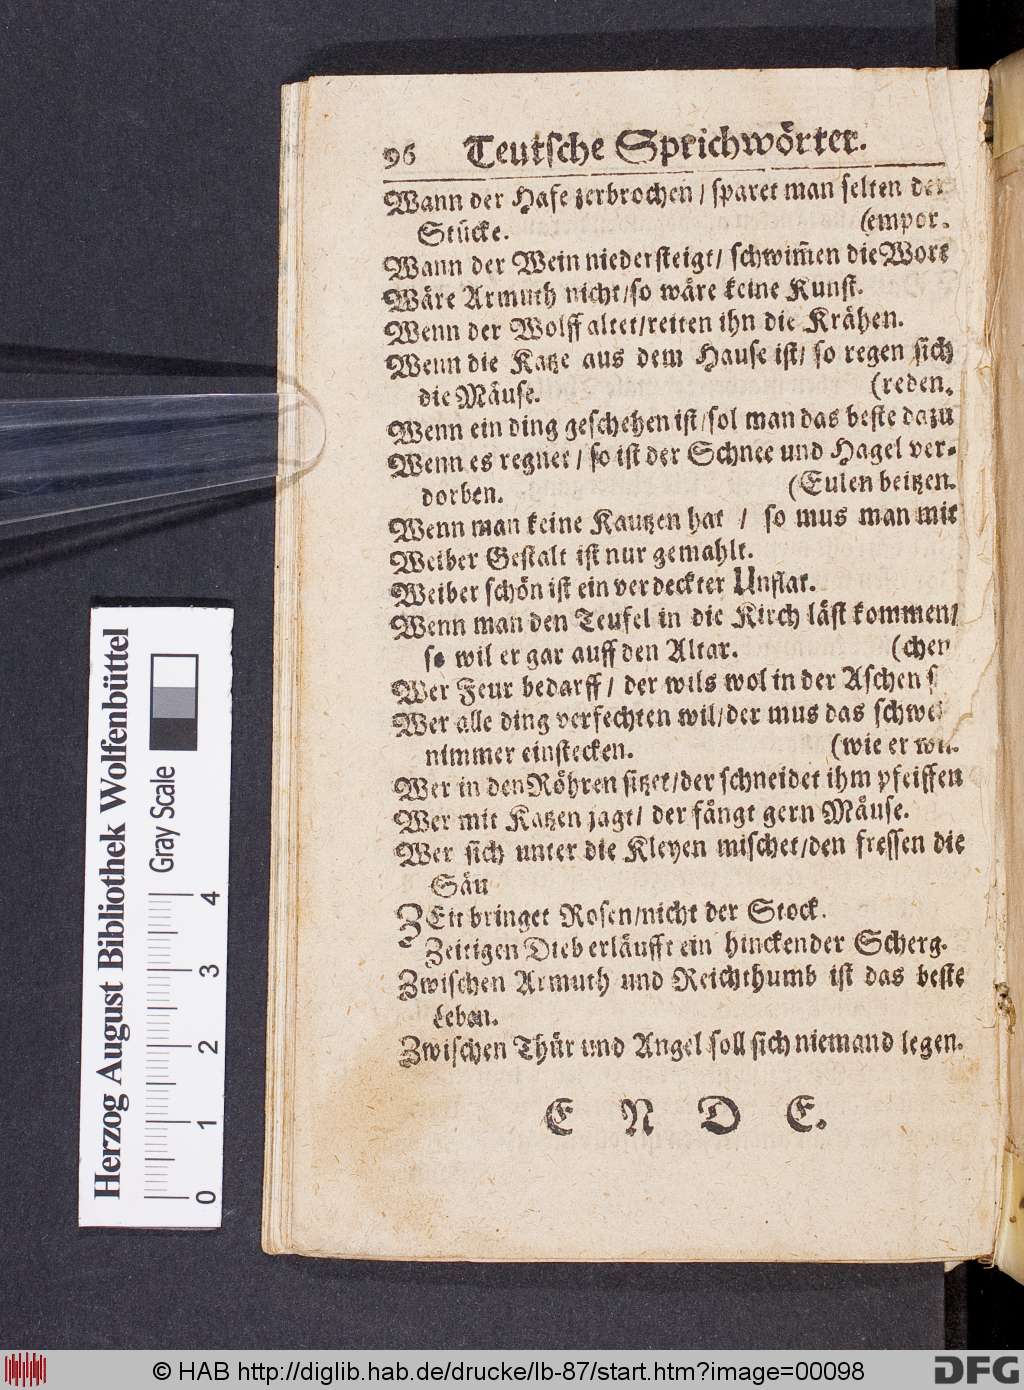 96 Teutsche Sprichwörter.
Wann der Hafe zerbrochen / sparet man selten der
Stücke. (empor.
Wann der Wein niedersteigt / schwim̃en die Wort
Wäre Armuth nicht / so wäre keine Kunst.
Wenn der Wolff altet / reiten ihn die Krähen.
Wenn die Katze aus dem Hause ist / so regen sich
die Mäuse. (reden.
Wenn ein ding geschehen ist / sol man das beste dazu
Wenn es regnet / so ist der Schnee und Hagel ver-
dorben. (Eulen beitzen.
Wenn man keine Kautzen hat / so mus man mit
Weiber Gestalt ist nur gemahlt.
Weiber schön ist ein verdeckter Unflat.
Wenn man den Teufel in die Kirch läst kommen /
so wil er gar auff den Altar. (chen
Wer Feur bedarff / der wils wol in der Aschen s
Wer alle ding verfechten wil / der mus das schwe
nimmer einstecken. (wie er wil.
Wer in den Röhren sitzet / der schneidet ihm pfeiffen
Wer mit Katzen jagt / der fängt gern Mäuse.
Wer sich unter die Kleyen mischet / den fressen die
Säu
ZEit bringet Rosen / nicht der Stock.
Zeitigen Dieb erläufft ein hinckender Scherg.
Zwischen Armuth und Reichthumb ist das beste
Leben.
Zwischen Thür und Angel soll sich niemand legen.
E N D E.
Herzog August Bibliothek Wolfenbüttel
Gray Scale
0 1 2 3 4
© HAB http://diglib.hab.de/drucke/lb-87/start.htm?image=00098
DFG